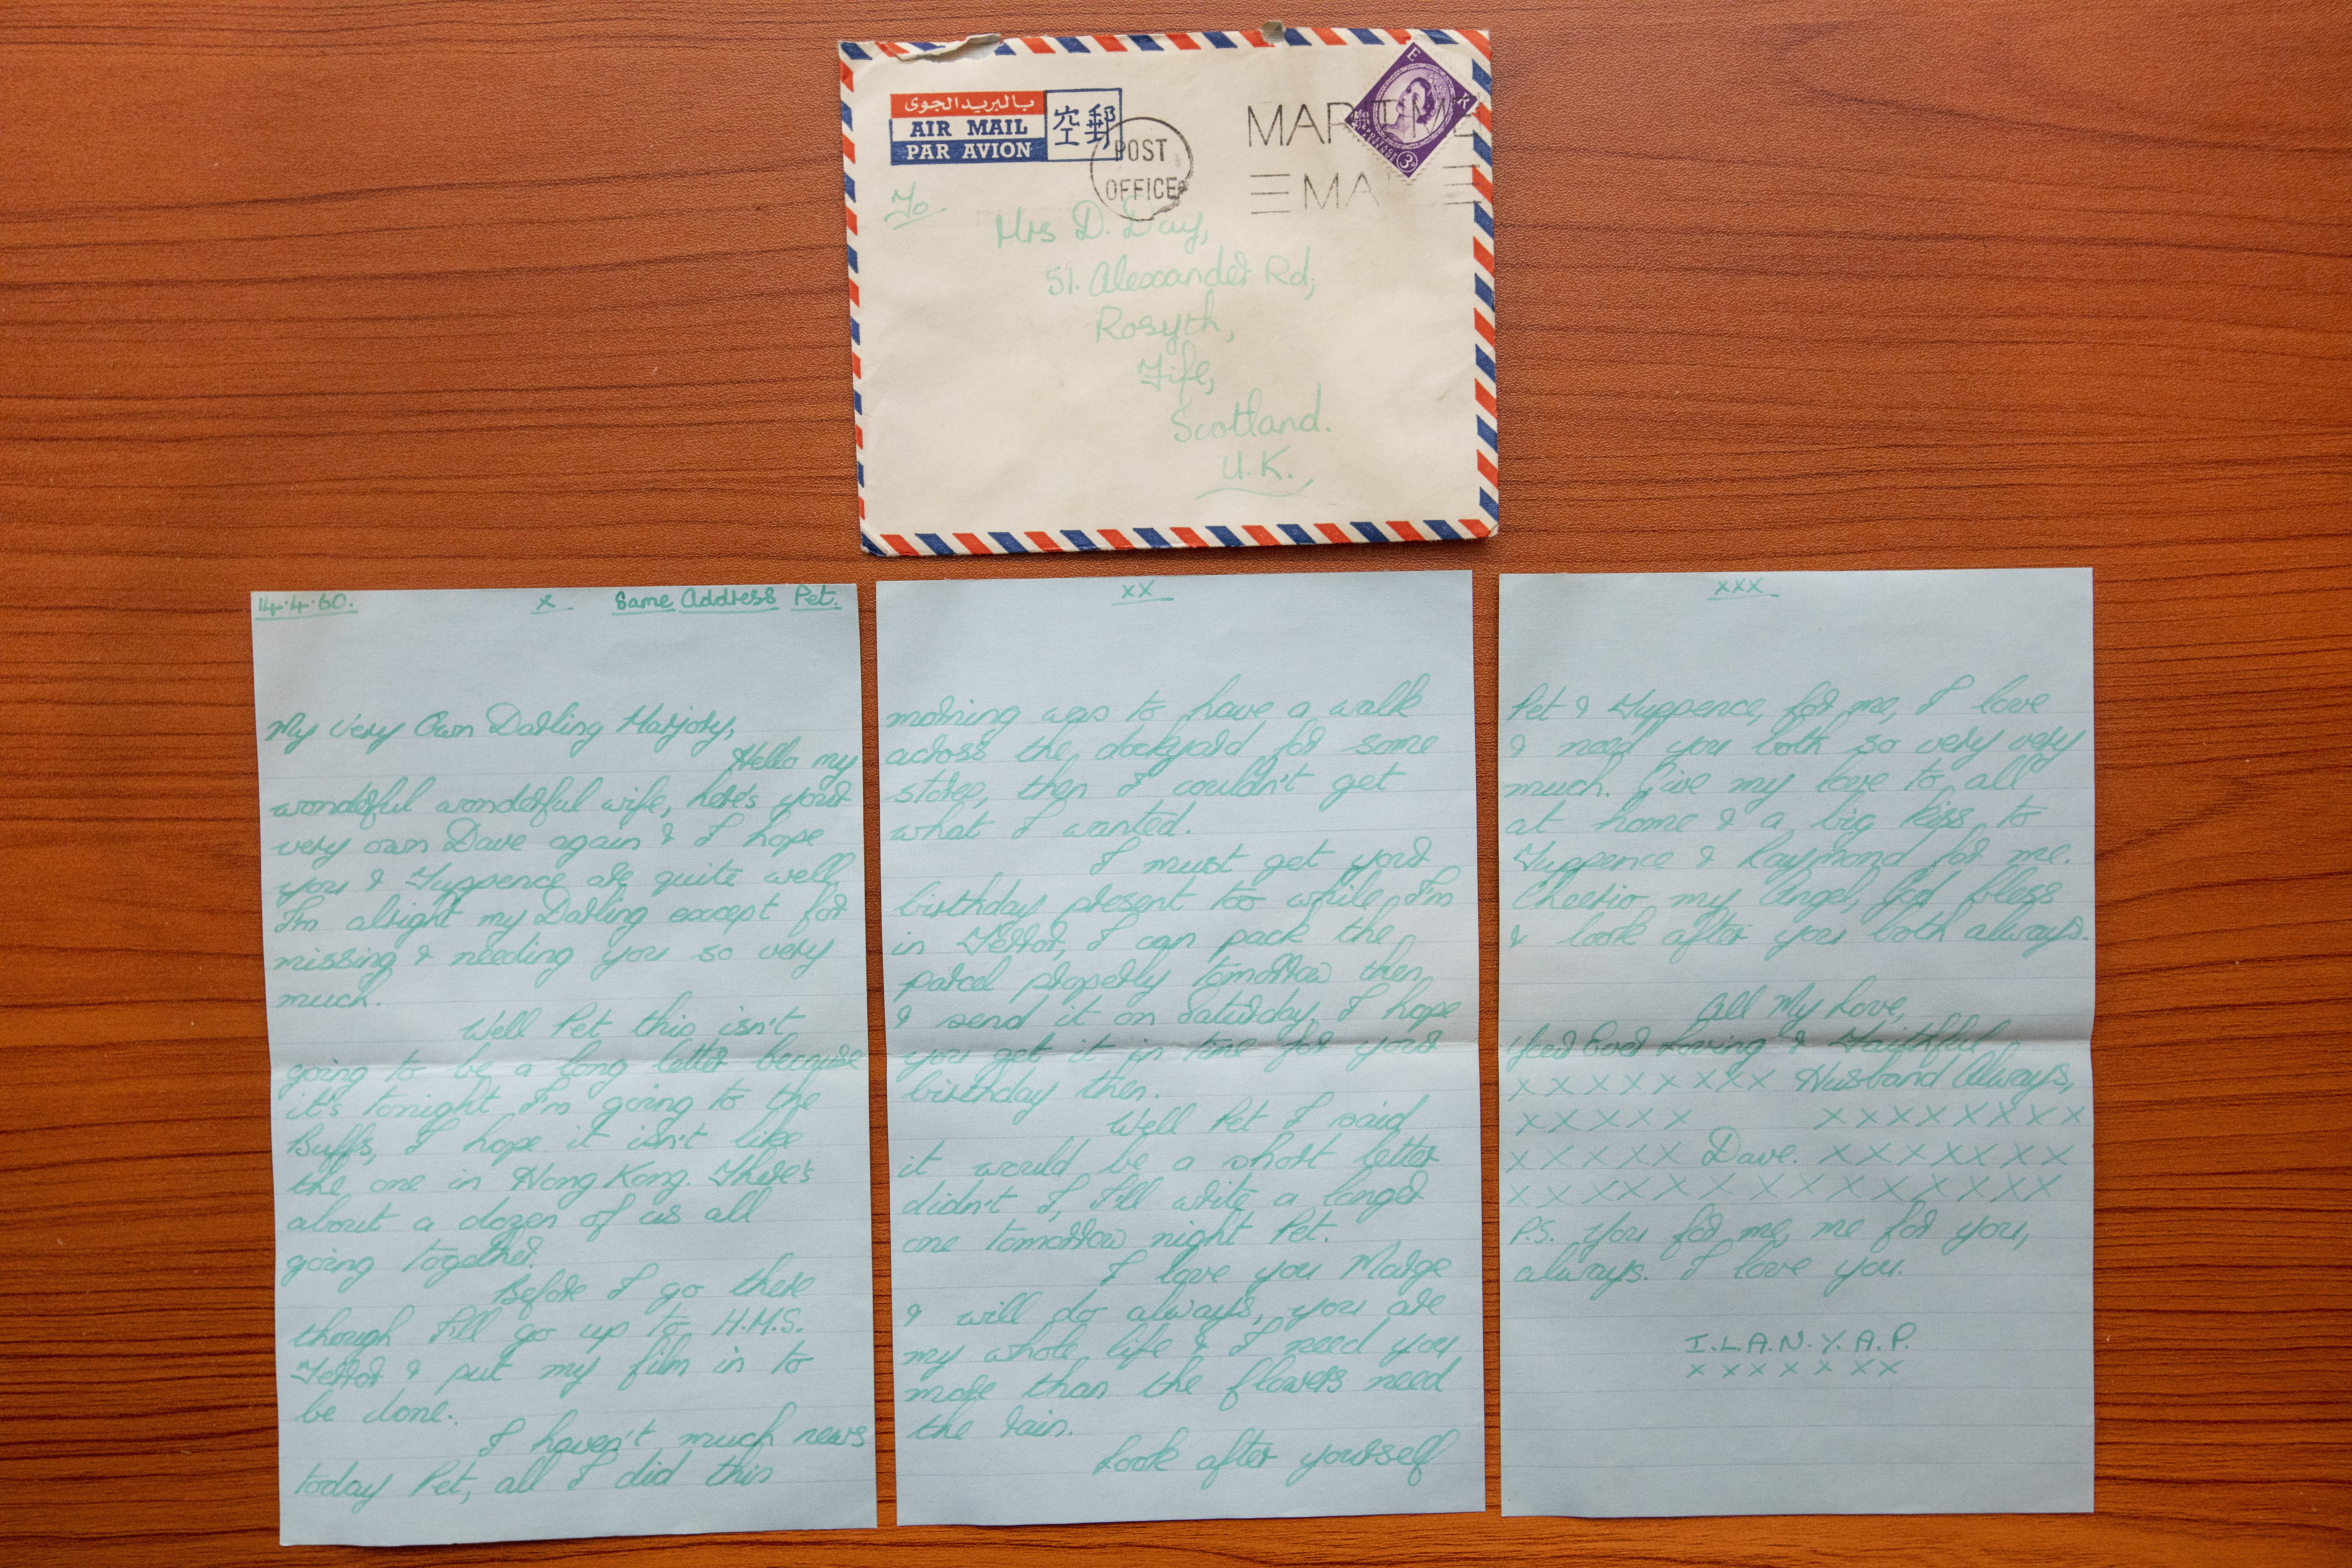 بالبريد الجوى
AIR MAIL
PAR AVION
空郵
POST
OFFICE
MARITIME
MAIL
E R
POSTAGE
3D
To
Mrs D. Day,
51. Alexander Rd,
Rosyth,
Fife,
Scotland.
U.K.,
14.4.60. x Same Address Pet.
My Very Own Darling Marjory,
Hello my
wonderful wonderful wife, here's your
very own Dave again & I hope
you & Tuppence are quite well,
I'm alright my Darling except for
missing & needing you so very
much.
Well Pet this isn't
going to be a long letter because
it's tonight I'm going to the
Buffs, I hope it isn't like
the one in Hong Kong. There's
about a dozen of us all
going together.
Before I go there
though I'll go up to H.M.S.
Terror & put my film in to
be done.
I haven't much news
today Pet, all I did this
xx
morning was to have a walk
across the dockyard for some
stores, then I couldn't get
what I wanted.
I must get your
birthday present too while I'm
in Terror, I can pack the
parcel properly tomorrow then,
& send it on Saturday, I hope
you get it in time for your
birthday then.
Well Pet I said
it would be a short letter
didn't I, I'll write a longer
one tomorrow night Pet.
I love you Marge
& will do always, you are
my whole life & I need you
more than the flowers need
the rain.
Look after yourself
xxx
Pet & Tuppence, for me, I love
& need you both so very very
much. Give my love to all
at home & a big kiss to
Tuppence & Raymond for me.
Cheerio my Angel, God bless
& look after you both always.
All My Love,
Your Ever Loving & Faithful
x x x x x x x x Husband Always,
x x x x x x x x x x x x x
x x x x x Dave. x x x x x x x
x x x x x x x x x x x x x x
P.S. You for me, me for you,
always. I love you.
I.L.A.N.Y.A.P.
x x x x x x x